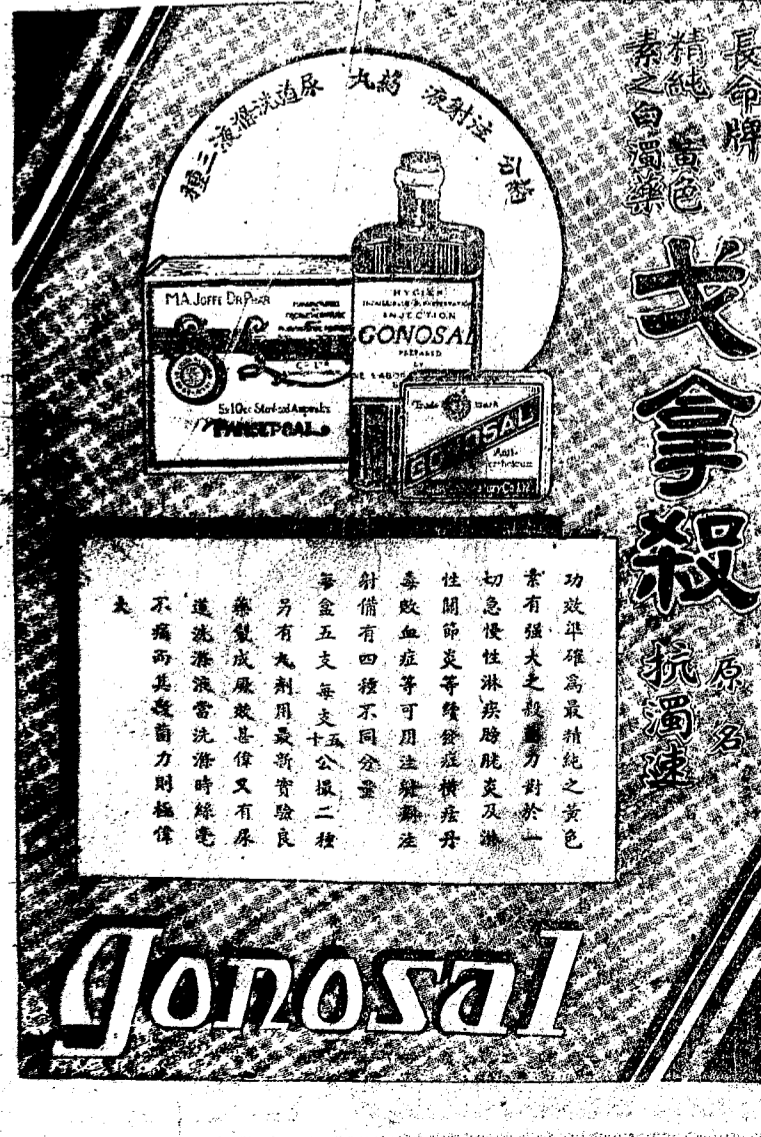 長命牌
精純黃色
素之白濁藥
戈拿殺
原名
抗濁速
分藥 注射液 藥丸 尿道洗滌液三種
M.A. JOFFE DR PHAR
5x10cc Sterilized Ampoules
HYGIEN
INJECTION
GONOSAL
PREPARED
BY
Trade Mark
GONOSAL
Anti-
功效準確爲最精純之黃色
素有强大之殺菌力對於一
切急慢性淋疾膀胱炎及淋
性關節炎等續發症橫痃丹
毒敗血症等可用注射劑注
射備有四種不同分量
每盒五支每支五十公撮二種
另有丸劑用最新實驗良
藥製成厥效甚偉又有尿
道洗滌液當洗滌時絲毫
不痛而其殺菌力則極偉
大
Gonosal